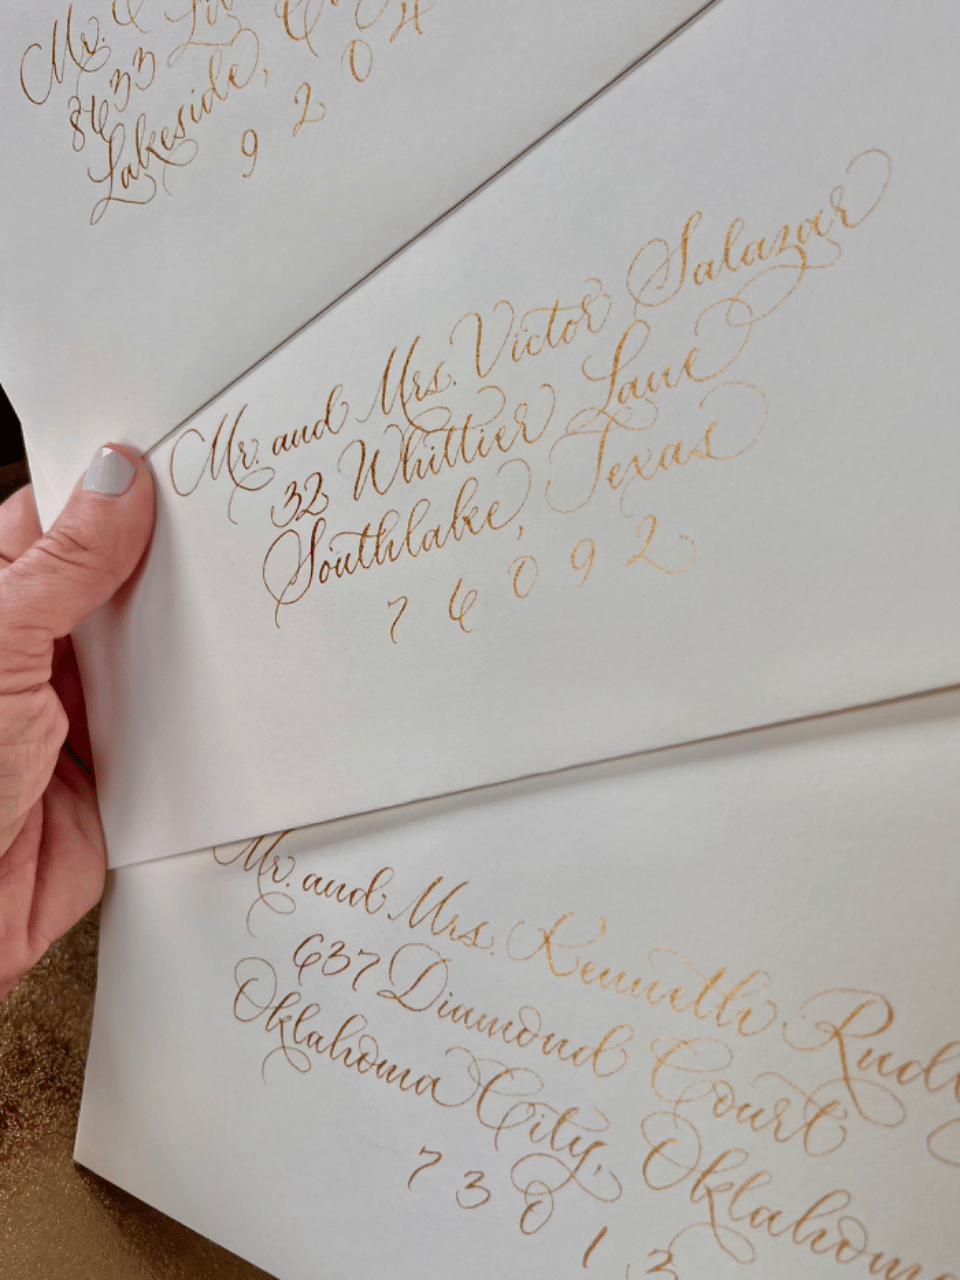 Mr. &
8633
Lakeside,
9 2 0 4
Mr. and Mrs. Victor Salazar
32 Whittier Lane
Southlake, Texas
7 6 0 9 2
Mr. and Mrs. Kenneth
637 Diamond Court
Oklahoma City, Oklahoma
7 3 0 1 3